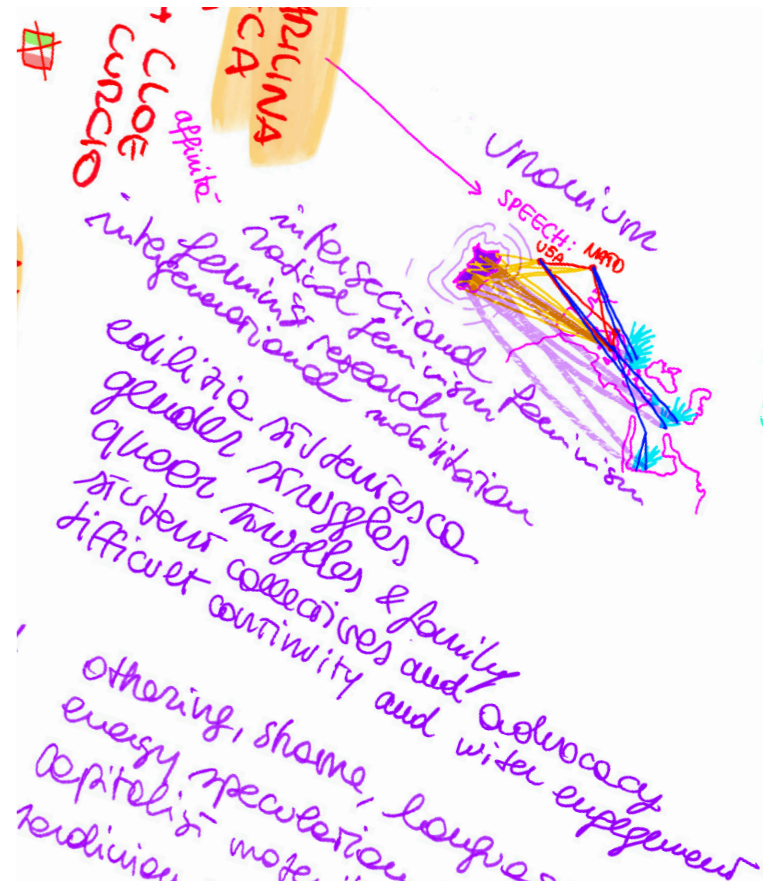 CLOE
CURCIO
affinità
SPEECH:
USA
intersectional feminism
radical feminism
feminist research
intergenerational mobilitation
edilizia studentesca
gender struggles
queer struggles & family
student collectives and advocacy
difficult continuity and wider engagement
othering, shame,
energy speculation
capitalist